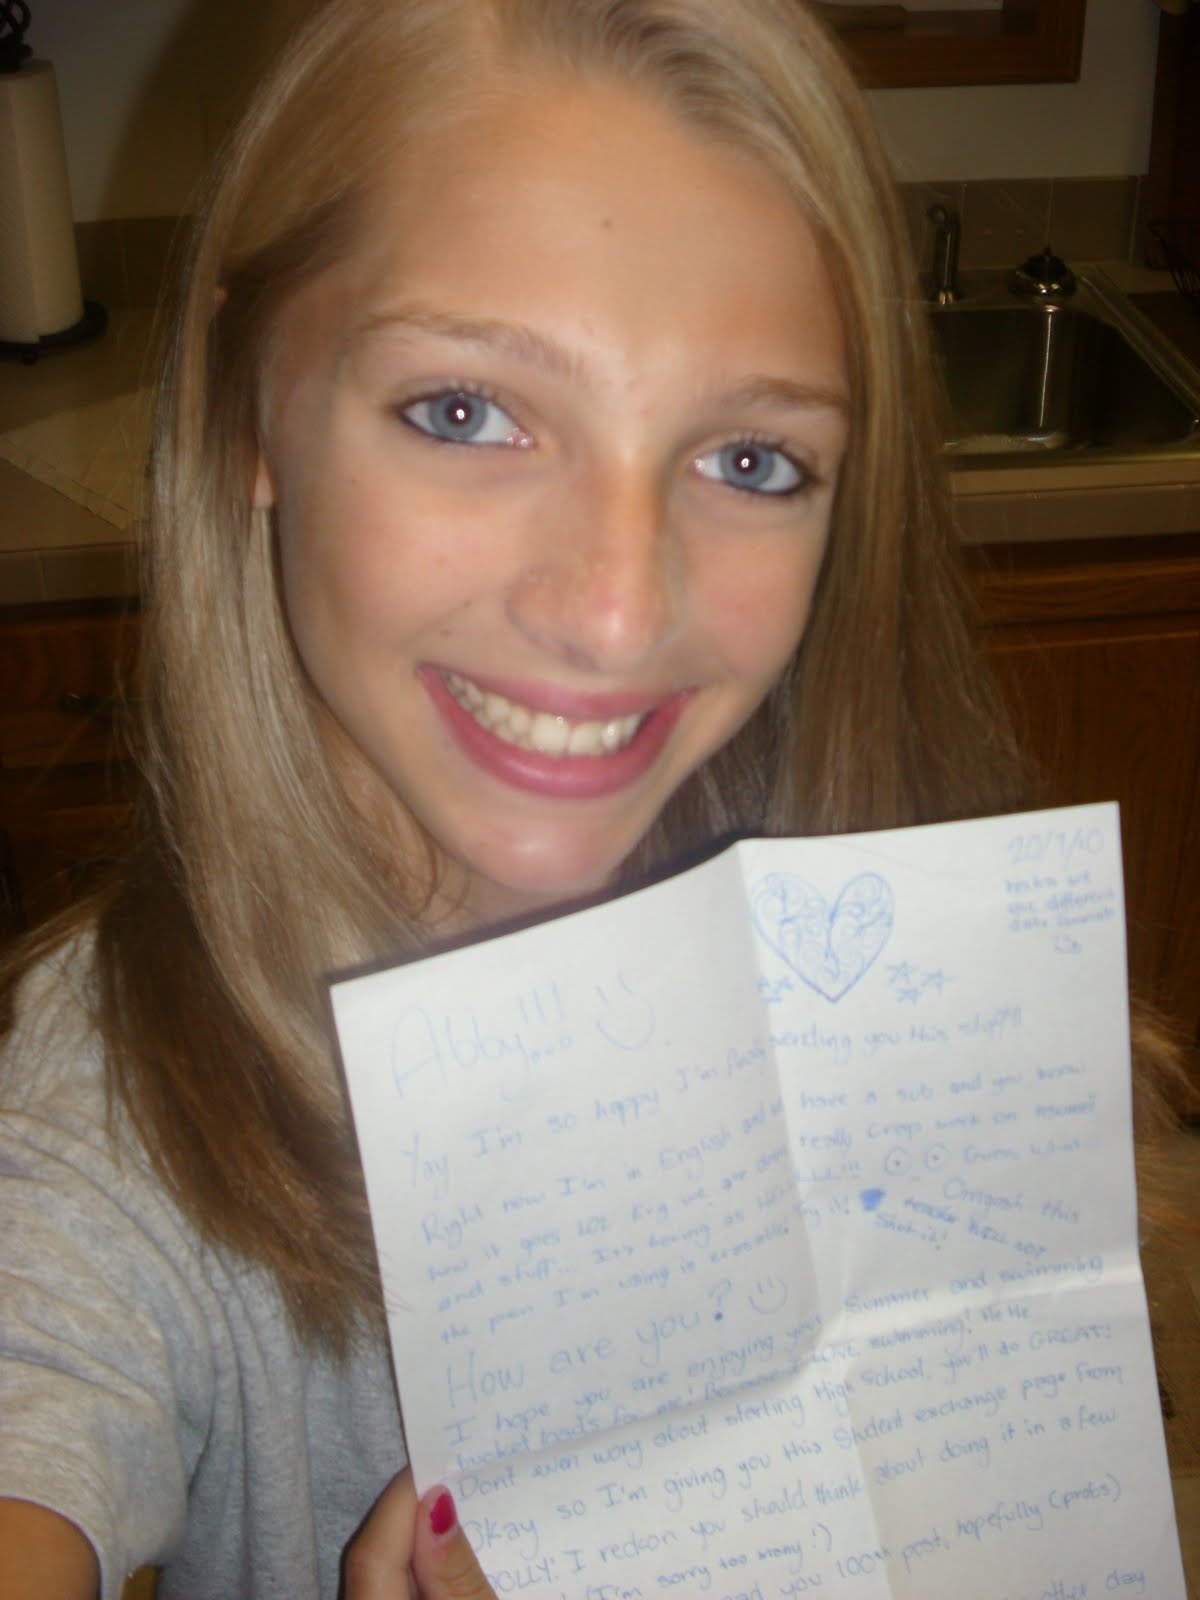 20/7/10
haha we
use different
date formats
Abby!!!
Yay I'm so happy I'm finally sending you this stuff!!!
Right now I'm in English and we have a sub and you know
how it goes LOL Erg we are doing really crap work on
and stuff... It's boring as Guess what
the pen I'm using is erasable! Try it! Omgosh this
How are you?
I hope you are enjoying your Summer and swimming
bucket loads for me! Because I LOVE swimming! He He
Dont even worry about starting High School, you'll do GREAT!
Okay so I'm giving you this Student exchange page from
DOLLY! I reckon you should think about doing it in a few
(I'm sorry too many!)
you 100th post, hopefully (probs)
other day